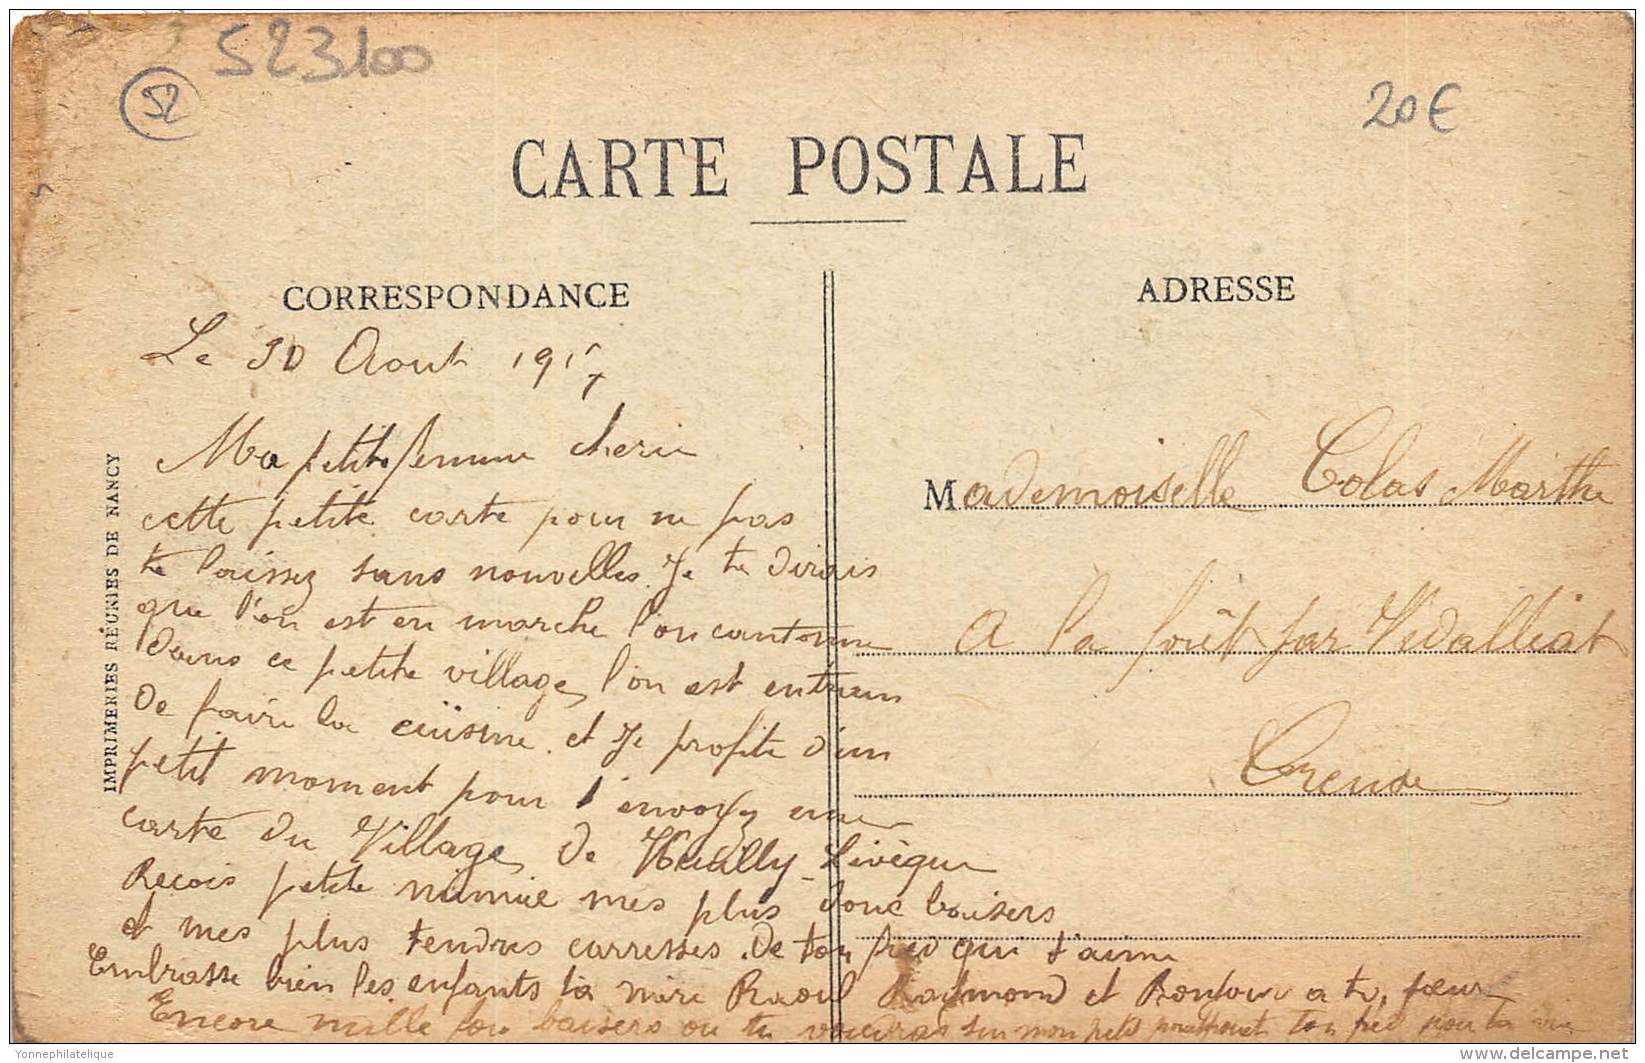 523100
52
20€
CARTE POSTALE
CORRESPONDANCE
ADRESSE
IMPRIMERIES RÉUNIES DE NANCY
Le 30 Aout 1917
Ma petite femme cherie
cette petite carte pour ne pas
te laissez sans nouvelles. Je te dirais
que l'on est en marche l'on cantonne
dans ce petite village, l'on est entrain
De faire la cuisine. et Je profite d'un
petit moment pour t'envoyez une
carte du Village, de Neuilly-Lévêque
Recois petite mimie mes plus doux baisers
et mes plus tendres carresses. De ton fred qui t'aime
Embrasse bien les enfants ta mère Raoul Raymond et Bonjour a ta sœur
Encore mille fou baisers ou tu voudras sur mon petit ton fred pour la vie
Mademoiselle Colas Marthe
A la forêt par Vidalliat
Creuse
Yonnephilatelique
www.delcampe.net